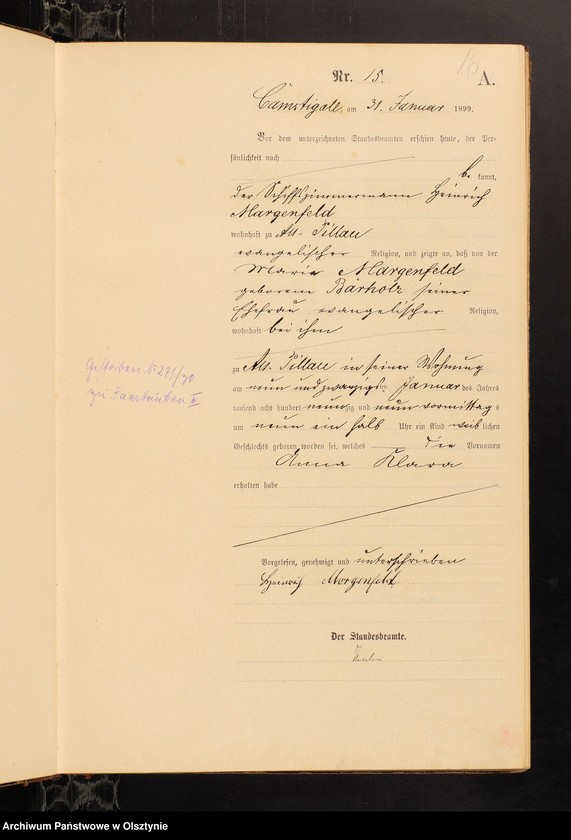 Nr. 15.
A.
Camstigall, am 31. Januar 1899.
Vor dem unterzeichneten Standesbeamten erschien heute, der Per-
sönlichkeit nach
be kannt,
der Schiffszimmermann Heinrich
Margenfeld
wohnhaft zu Alt-Pillau
evangelischer Religion, und zeigte an, daß von der
Maria Margenfeld
geborenen Barholz seiner
Ehefrau evangelischer Religion,
wohnhaft bei ihm
zu Alt-Pillau in seiner Wohnung
am neun und zwanzigsten Januar des Jahres
tausend acht hundert neunzig und neun vormittags
um neun ein halb Uhr ein Kind weiblichen
Geschlechts geboren worden sei, welches die Vornamen
Anna Klara
erhalten habe
Vorgelesen, genehmigt und unterschrieben
Heinrich Morgenfeld
Der Standesbeamte.
Gestorben N. 271/70
zu Saarbrücken II
Archiwum Państwowe w Olsztynie